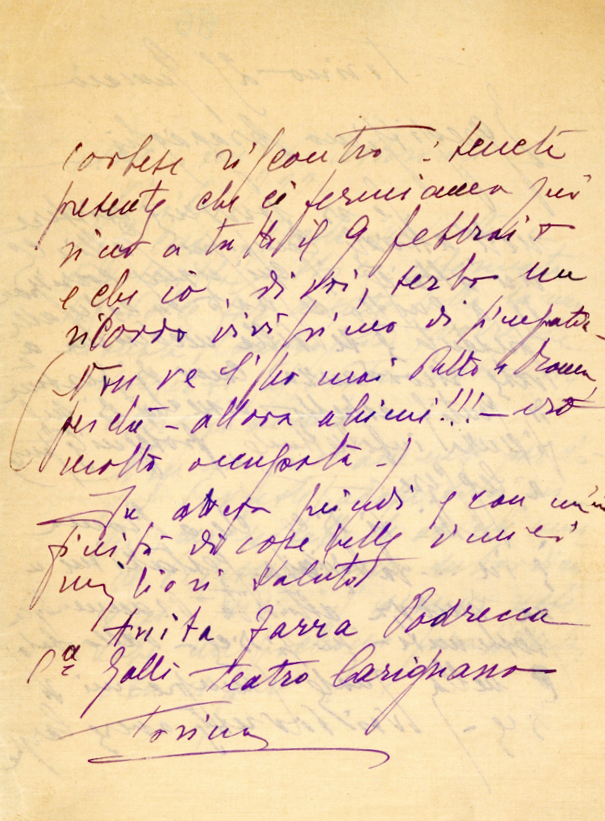 cortese riscontro: tenete
presente che ci fermiamo qui
sino a tutto il 9 febbraio
e che io, di voi, serbo un
ricordo vivissimo di simpatia_
(Non ve l'ho mai detto a Roma,
perché – allora ahimi!!! – ero
molto occupata –)
In attesa quindi e con un'in
finità di cose belle i miei
migliori saluti
Anita Zarra Podrecca
Cª Galli Teatro Carignano
Torino